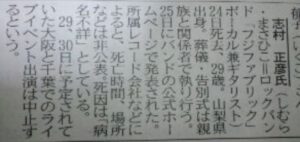 志村　正彦氏（しむら
まさひこ＝ロックバン
ド「フジファブリック」
ボーカル兼ギタリスト）
24日死去、29歳。山梨県
出身。葬儀・告別式は親
族と関係者で執り行う。
25日にバンドの公式ホー
ムページで発表された。
所属レコード会社などに
よると、死亡時間、場所
などは非公表で死因は「病
名不詳」としている。
29、30日に予定されて
いた大阪と千葉でのライ
ブイベント出演は中止す
るという。